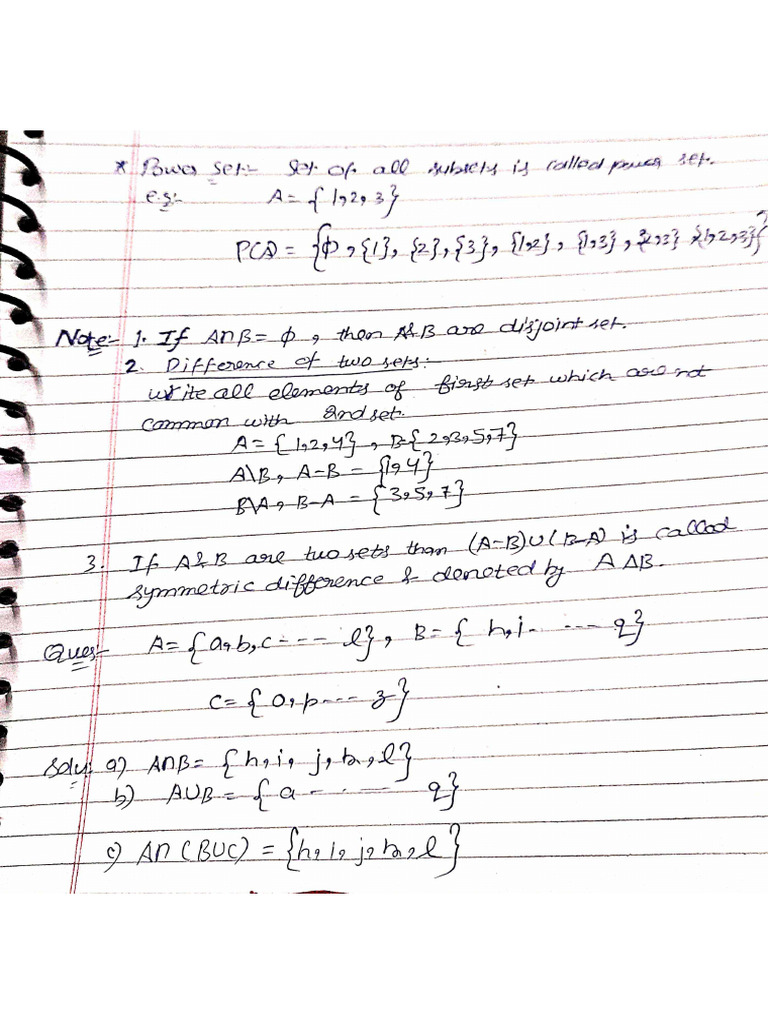 * Power set:- Set of all subsets is called power set.
e.g:- A = {1,2,3}
P(A) = {ϕ, {1}, {2}, {3}, {1,2}, {1,3}, {2,3} {1,2,3}}
Note:- 1. If A∩B = ϕ, then A&B are disjoint set.
2. Difference of two sets:-
write all elements of first set which are not
common with 2nd set.
A = {1,2,4}, B={2,3,5,7}
A\B, A-B = {1,4}
B\A, B-A = {3,5,7}
3. If A&B are two sets than (A-B)∪(B-A) is called
symmetric difference & denoted by A∆B.
Ques:- A = {a,b,c---- l}, B = {h,i- ---- q}
C = {o,p--- z}
Soly: a) A∩B = {h,i, j,k,l}
b) A∪B = {a - ---- q}
c) A∩(B∪C) = {h,i,j,k,l}